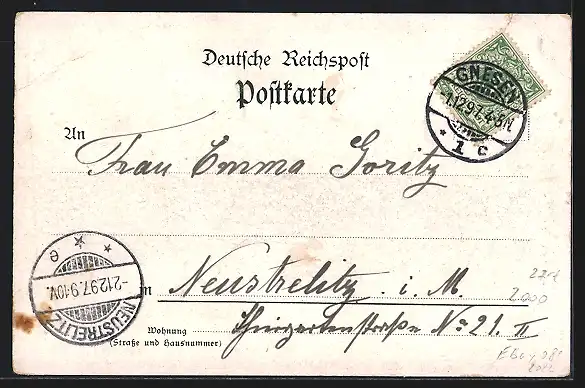 Deutsche Reichspost
Postkarte
GNESEN
1.12.97.4-5N.
* 1 c
An
Frau Emma Goritz
in Neustrelitz i. M.
Wohnung Thiergartenstraße No 21. II
(Straße und Hausnummer)
NEUSTRELITZ
-2.12.97.9-10V.
* * e
2000